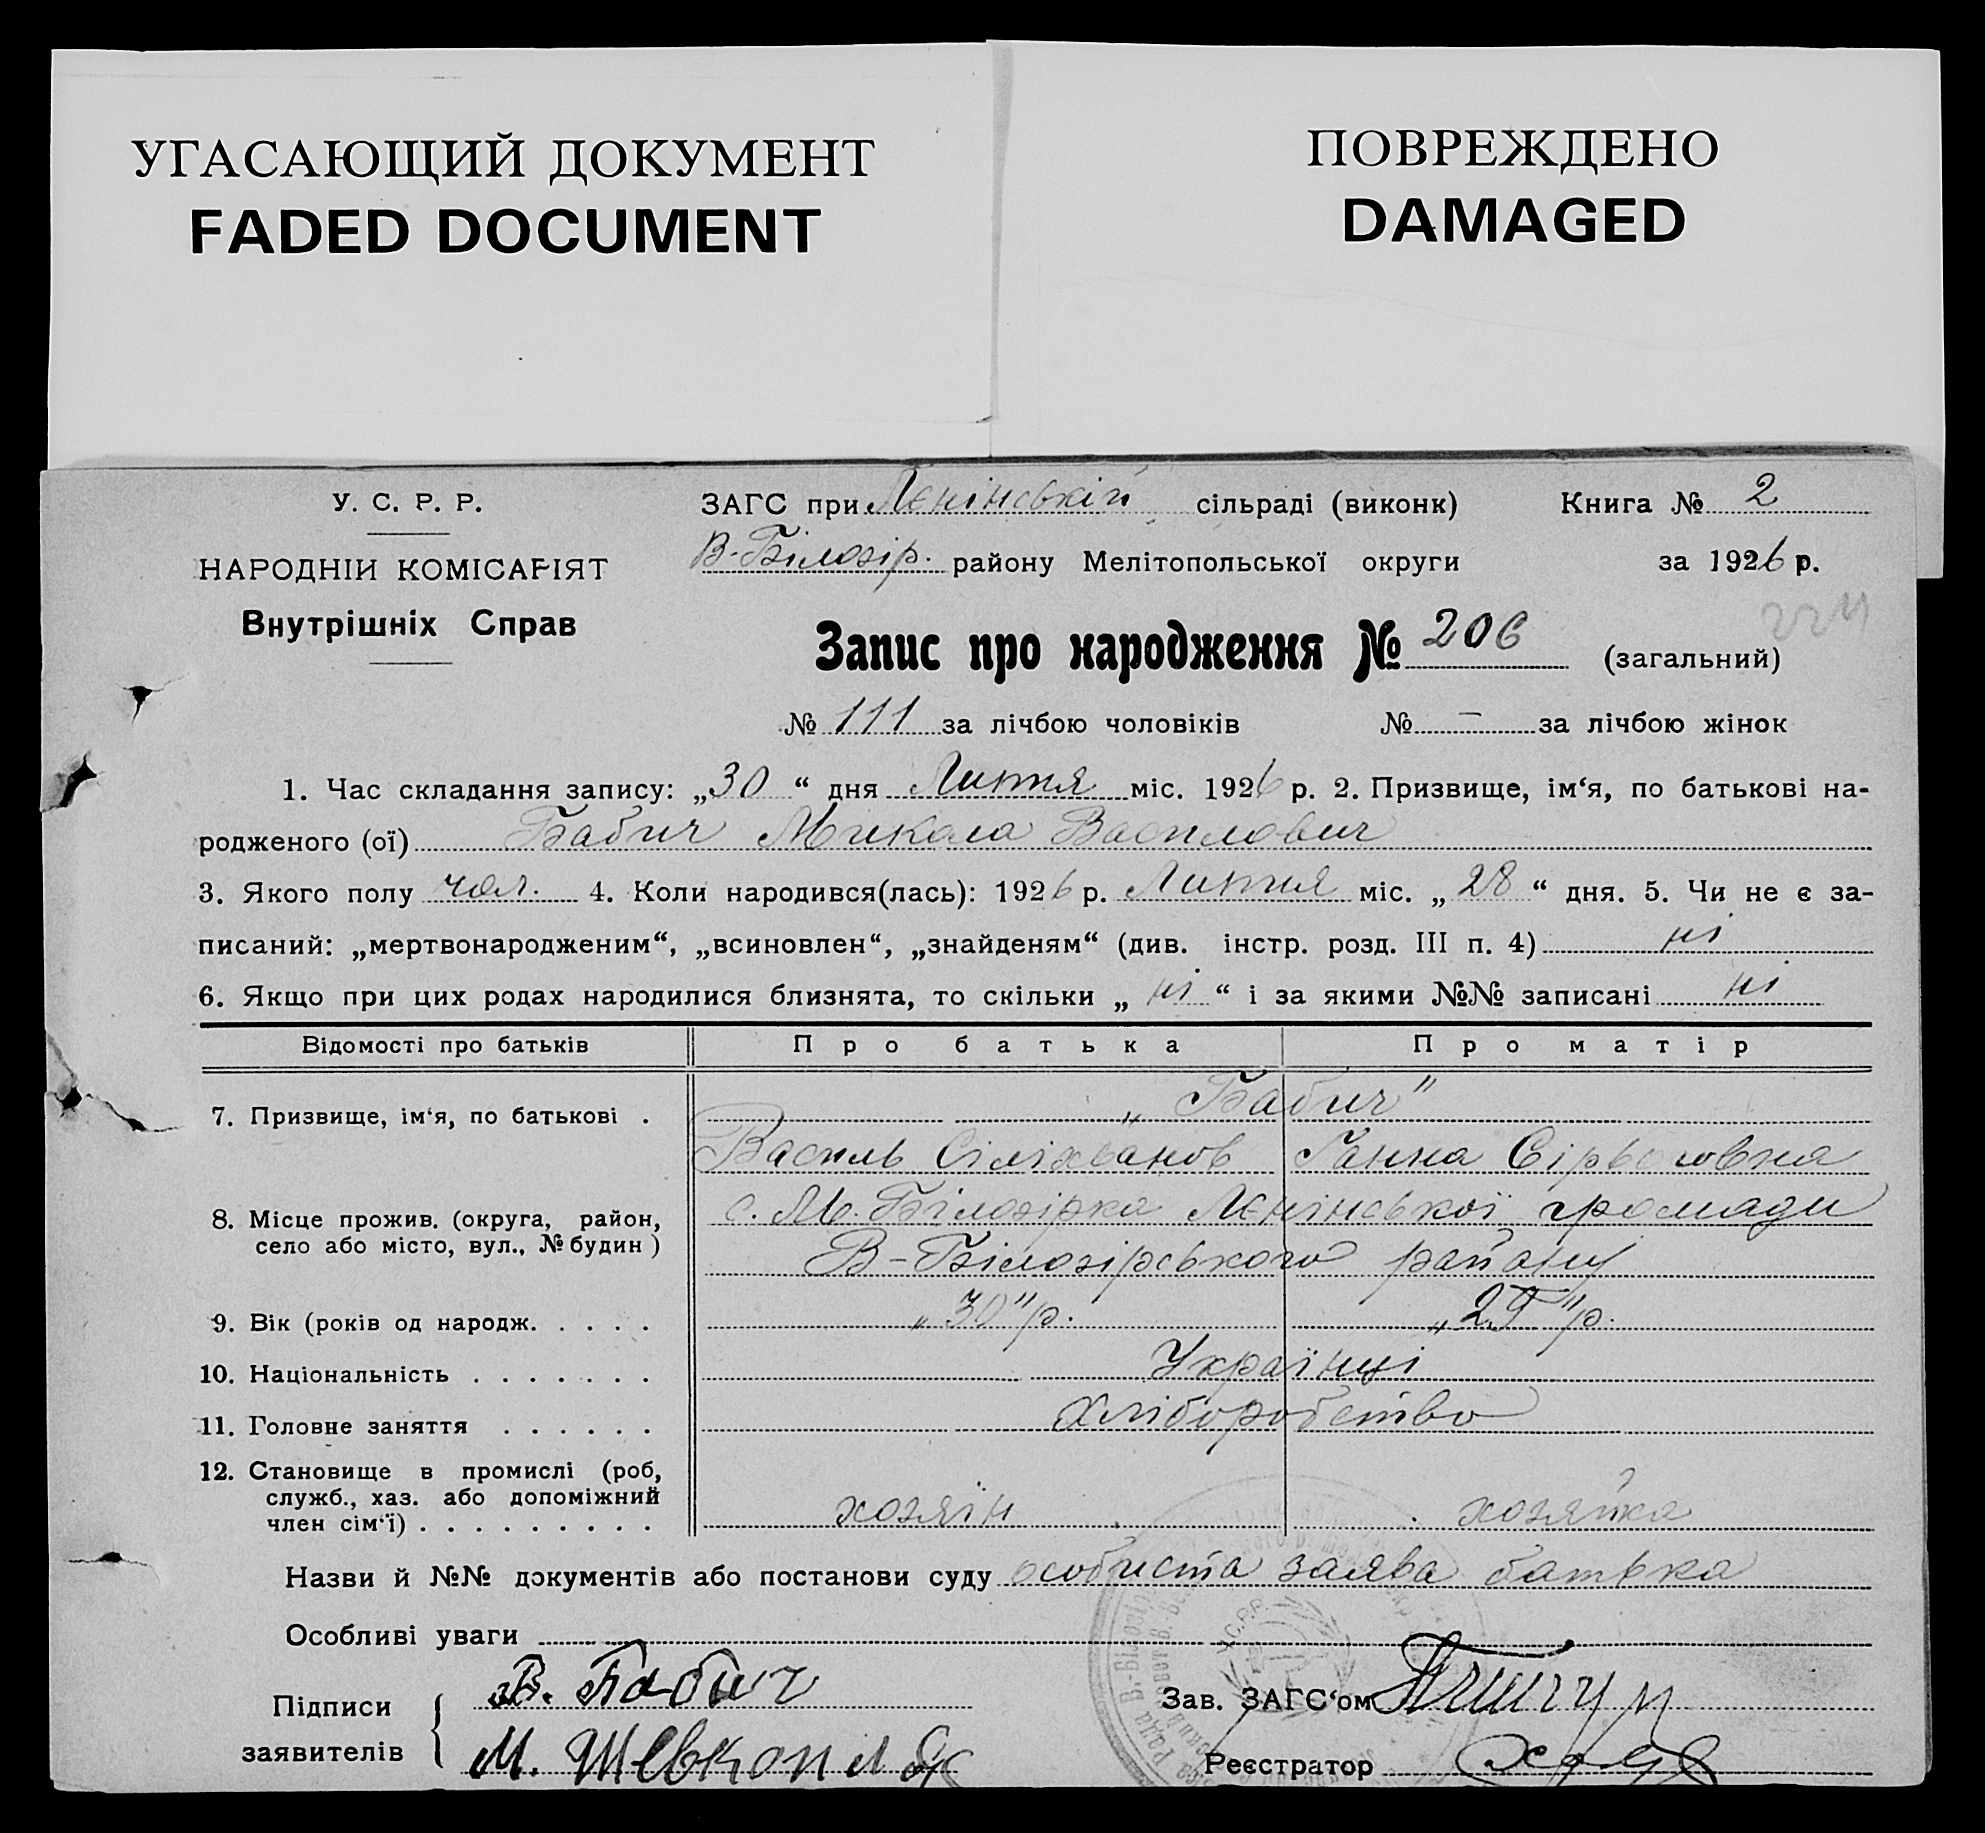 УГАСАЮЩИЙ ДОКУМЕНТ
FADED DOCUMENT
ПОВРЕЖДЕНО
DAMAGED
У. С. Р. Р.
НАРОДНІИ КОМІСАРІЯТ
Внутрішніх Справ
ЗАГС при Лєнінській сільраді (виконк) Книга № 2
В-Білозір. району Мелітопольської округи за 1926 р.
Запис про народження № 206 (загальний)
224
№ 111 за лічбою чоловіків № — за лічбою жінок
1. Час складання запису: „30“ дня Липня міс. 1926 р. 2. Призвище, ім‘я, по батькові на-
родженого (ої) Бабич Микола Василович
3. Якого полу чол. 4. Коли народився(лась): 1926 р. Липня міс. „28“ дня. 5. Чи не є за-
писаний: „мертвонародженим“, „всиновлен“, „знайденям“ (див. інстр. розд. III п. 4) ні
6. Якщо при цих родах народилися близнята, то скільки „ні“ і за якими №№ записані ні
Відомості про батьків Про батька Про матір
7. Призвище, ім‘я, по батькові . „Бабич”
Василь Ганна
8. Місце прожив. (округа, район, с. М. Білозірка Лєнінської громади
село або місто, вул., № будин) В-Білозірського району
9. Вік (років од народж. . . . . „30” р. „29” р.
10. Національність . . . . . . . Українці
11. Головне заняття . . . . . . Хліборобство
12. Становище в промислі (роб,
служб., хаз. або допоміжний
член сім‘ї) . . . . . . . . . хозяїн хозяйка
Назви й №№ документів або постанови суду особиста заява батька
Особливі уваги
Підписи В. Бабич Зав. ЗАГС‘ом
заявителів М. Шевкопляс Реєстратор